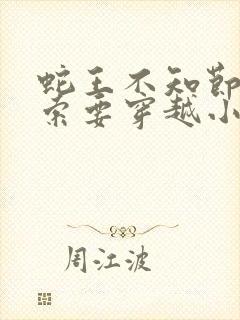 蛇王不知节
索要穿越小
周江波